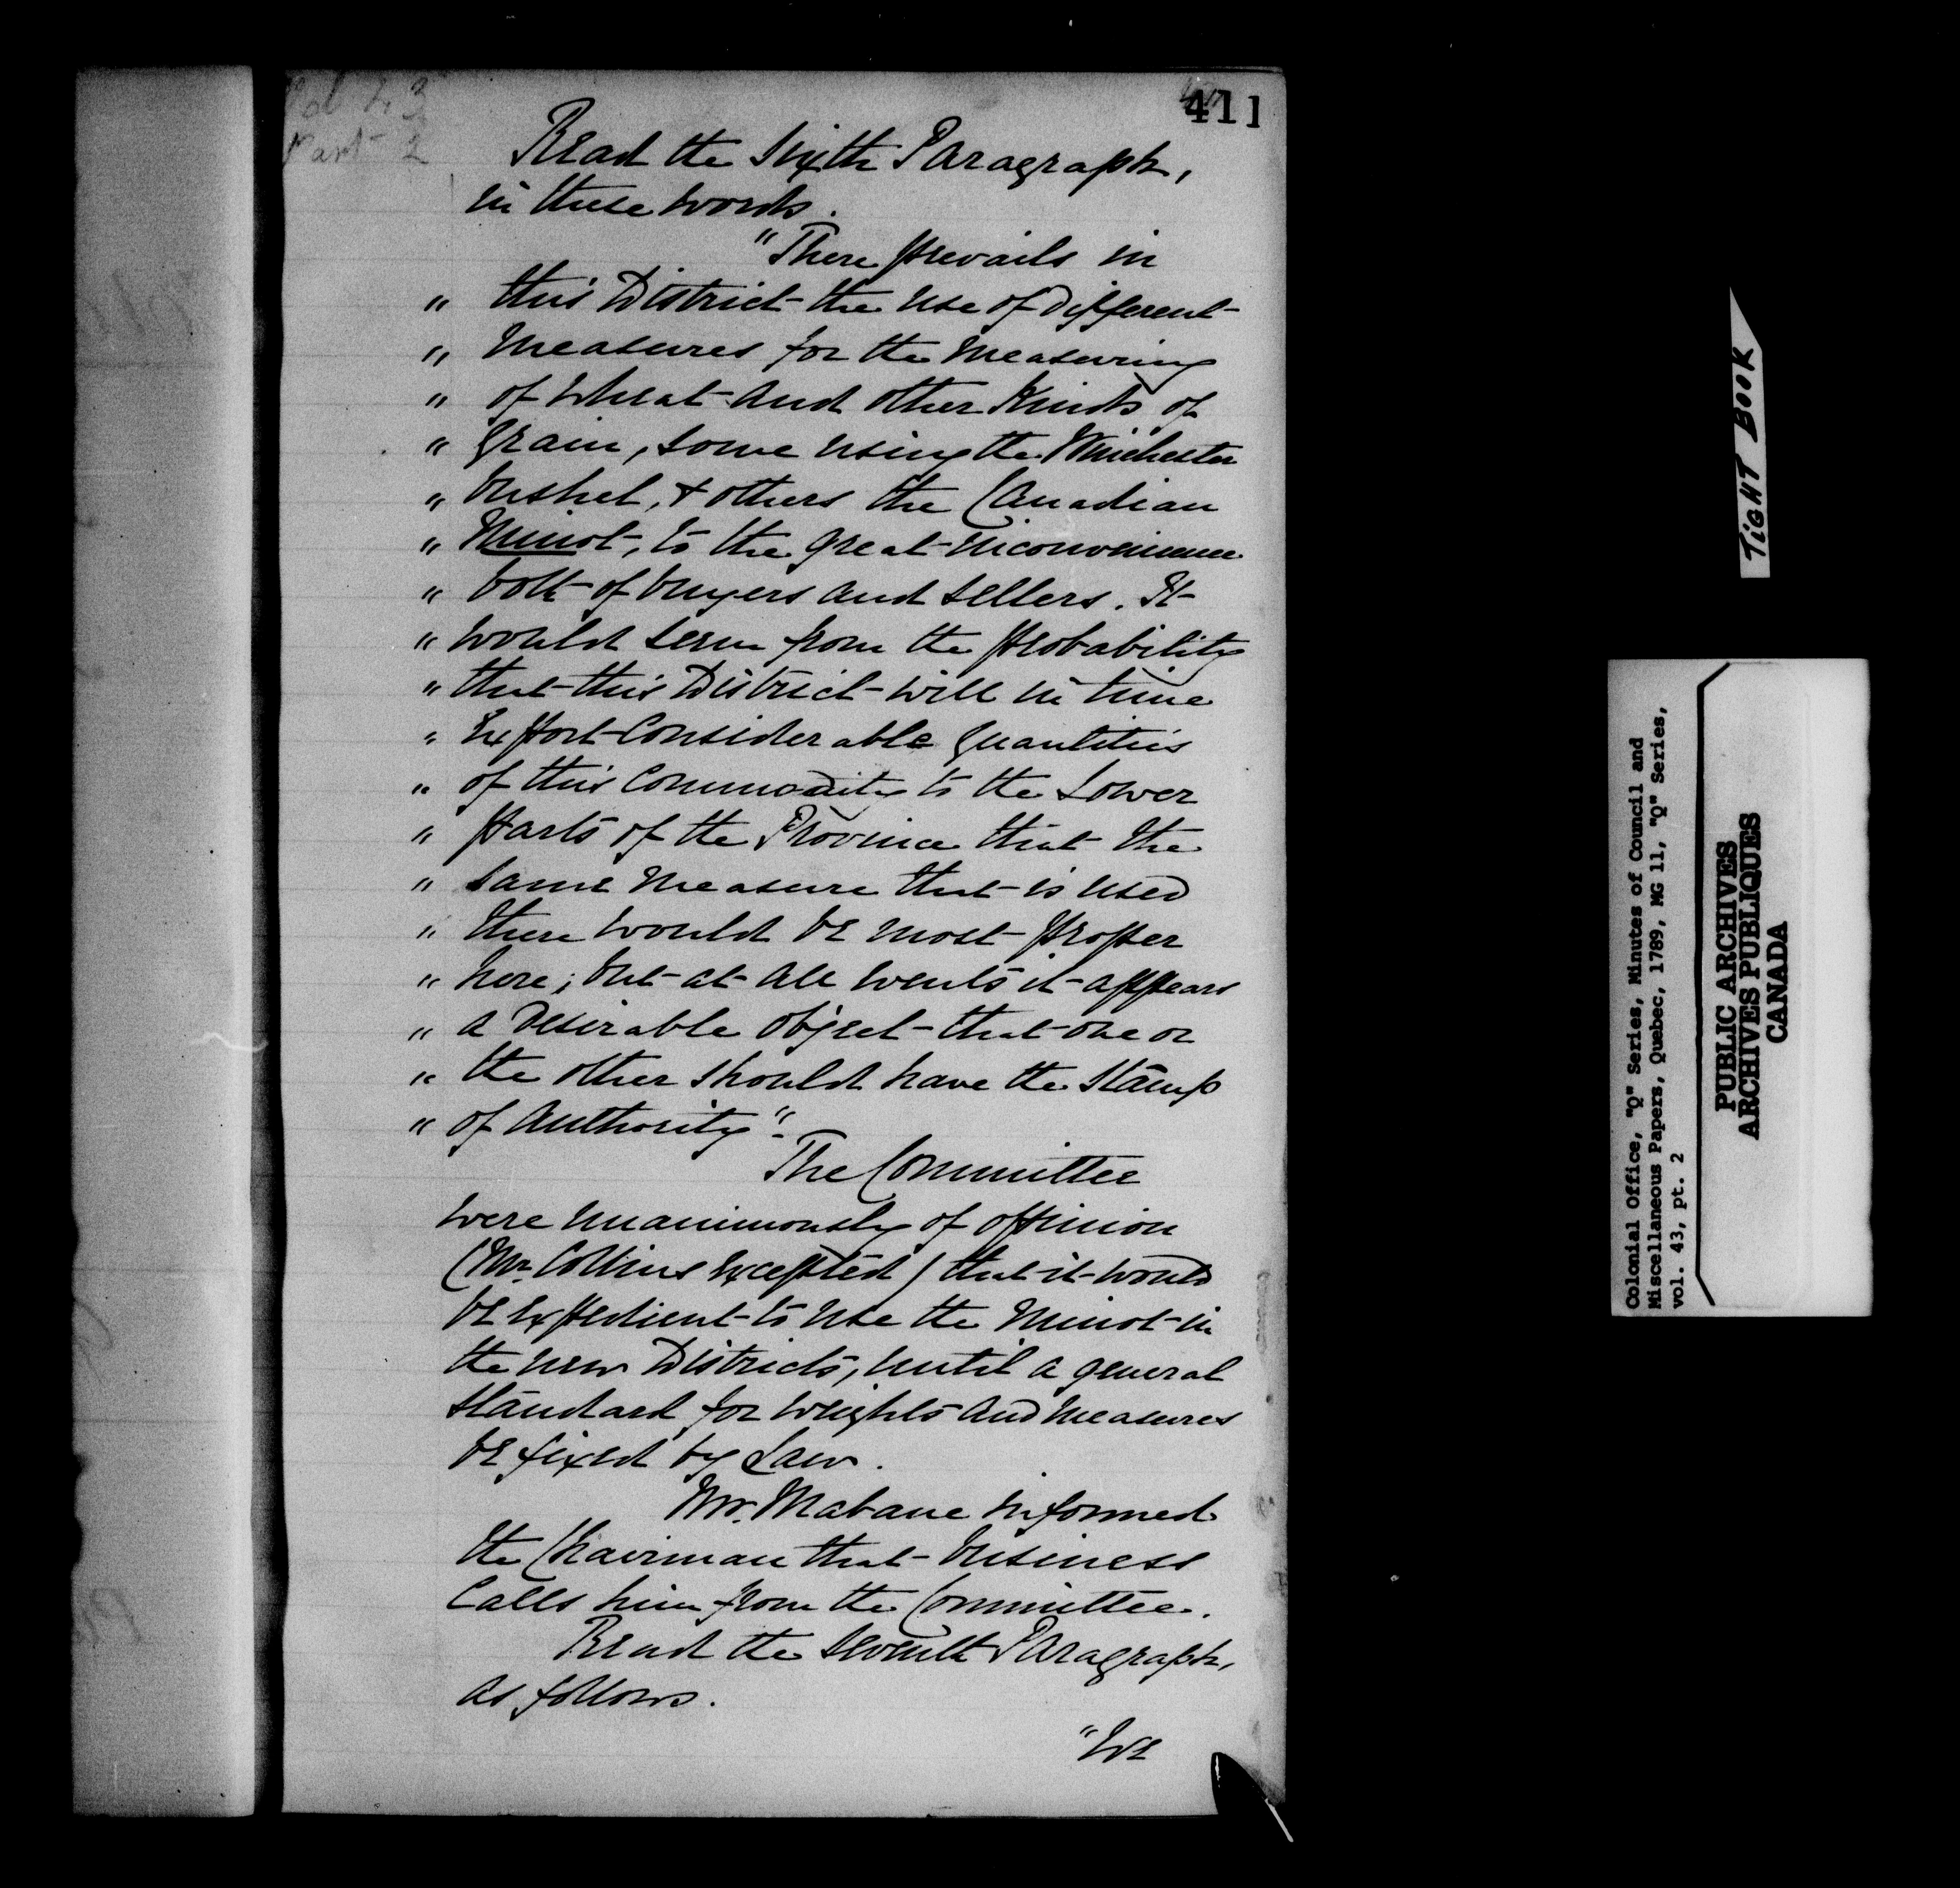 Vol 43
Part 2
411
Read the Sixth Paragraph,
in these words.
"There prevails in
" this District the use of different
" Measures for the measuring
" of Wheat and other Kinds of
" Grain, some using the Winchester
" bushel, & others the Canadian
" Minot, to the great inconvenience
" both of buyers and sellers. It
" would seem from the probability
" that this District will in time
" Export Considerable Quantities
" of this Commodity to the Lower
" parts of the Province that the
" same measure that is used
" there would be most proper
" here; but at all Events it appears
" a desirable object that one or
" the other should have the stamp
" of Authority".
The Committee
were unanimously of opinion
(Mr. Collins Excepted) that it would
be Expedient to use the Minot in
the new Districts, until a general
standard for weights and measures
be fixed by Law.
Mr. Mabane informed
the Chairman that business
calls him from the Committee.
Read the seventh Paragraph,
as follows.
"We
TIGHT BOOK
Colonial Office, "Q" Series, Minutes of Council and
Miscellaneous Papers, Quebec, 1789, MG 11, "Q" Series,
vol. 43, pt. 2
PUBLIC ARCHIVES
ARCHIVES PUBLIQUES
CANADA